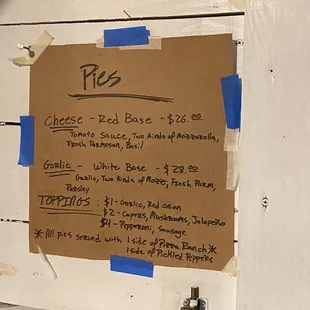 Pies
Cheese - Red Base - $26.00
Tomato Sauce, Two Kinds of Mozzarella,
Fresh Parmesan, Basil
Garlic - White Base - $28.00
Garlic, Two Kinds of Mozz, Fresh Parm,
Parsley
TOPPINGS: $1 - Garlic, Red Onion
$2 - Capers, Mushrooms, Jalapeño
$4 - Pepperoni, Sausage
*All pies served with 1 side of Pizza Ranch*
1 side of Pickled Peppers